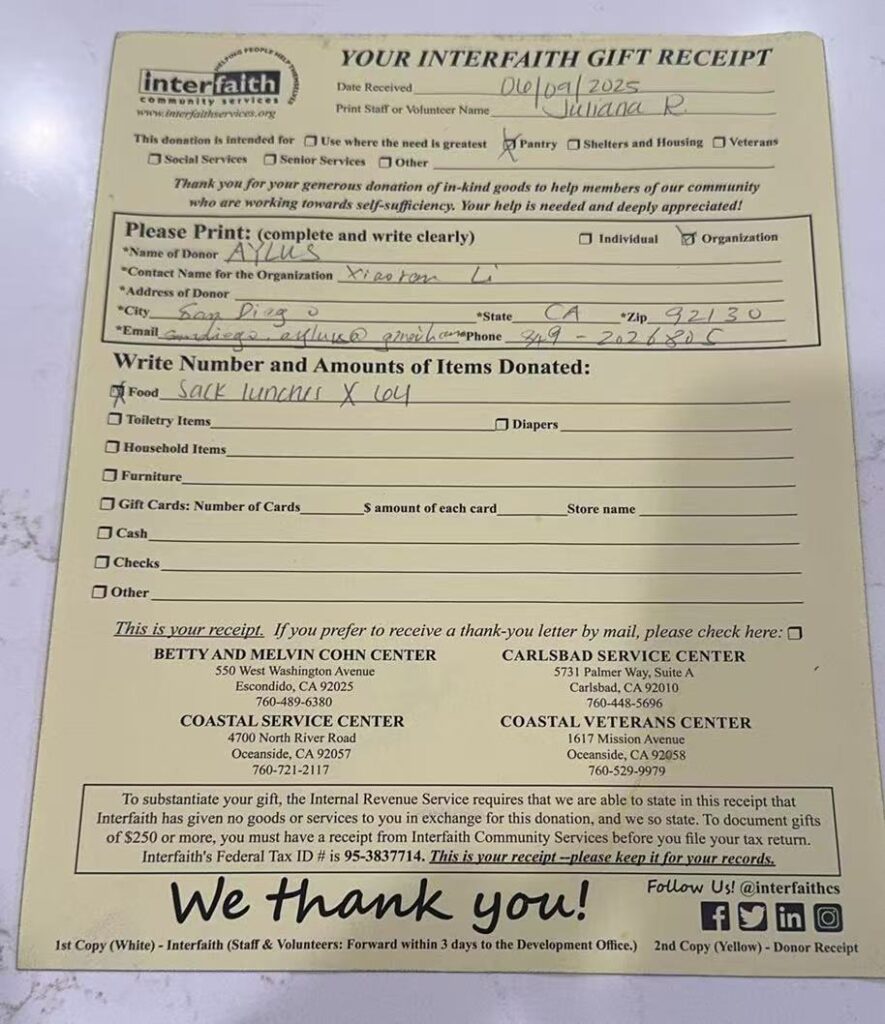 HELPING PEOPLE HELP THEMSELVES
interfaith
community services
www.interfaithservices.org
YOUR INTERFAITH GIFT RECEIPT
Date Received 06/09/2025
Print Staff or Volunteer Name Juliana R
This donation is intended for Use where the need is greatest Pantry Shelters and Housing Veterans
Social Services Senior Services Other
Thank you for your generous donation of in-kind goods to help members of our community
who are working towards self-sufficiency. Your help is needed and deeply appreciated!
Please Print: (complete and write clearly) Individual Organization
*Name of Donor AYLUS
*Contact Name for the Organization Li
*Address of Donor
*City San Diego *State CA *Zip 92130
*Email *Phone
Write Number and Amounts of Items Donated:
Food Sack lunches X 64
Toiletry Items Diapers
Household Items
Furniture
Gift Cards: Number of Cards $ amount of each card Store name
Cash
Checks
Other
This is your receipt. If you prefer to receive a thank-you letter by mail, please check here:
BETTY AND MELVIN COHN CENTER
550 West Washington Avenue
Escondido, CA 92025
760-489-6380
CARLSBAD SERVICE CENTER
5731 Palmer Way, Suite A
Carlsbad, CA 92010
760-448-5696
COASTAL SERVICE CENTER
4700 North River Road
Oceanside, CA 92057
760-721-2117
COASTAL VETERANS CENTER
1617 Mission Avenue
Oceanside, CA 92058
760-529-9979
To substantiate your gift, the Internal Revenue Service requires that we are able to state in this receipt that
Interfaith has given no goods or services to you in exchange for this donation, and we so state. To document gifts
of $250 or more, you must have a receipt from Interfaith Community Services before you file your tax return.
Interfaith's Federal Tax ID # is 95-3837714. This is your receipt --please keep it for your records.
We thank you!
Follow Us! @interfaithcs
1st Copy (White) - Interfaith (Staff & Volunteers: Forward within 3 days to the Development Office.) 2nd Copy (Yellow) - Donor Receipt